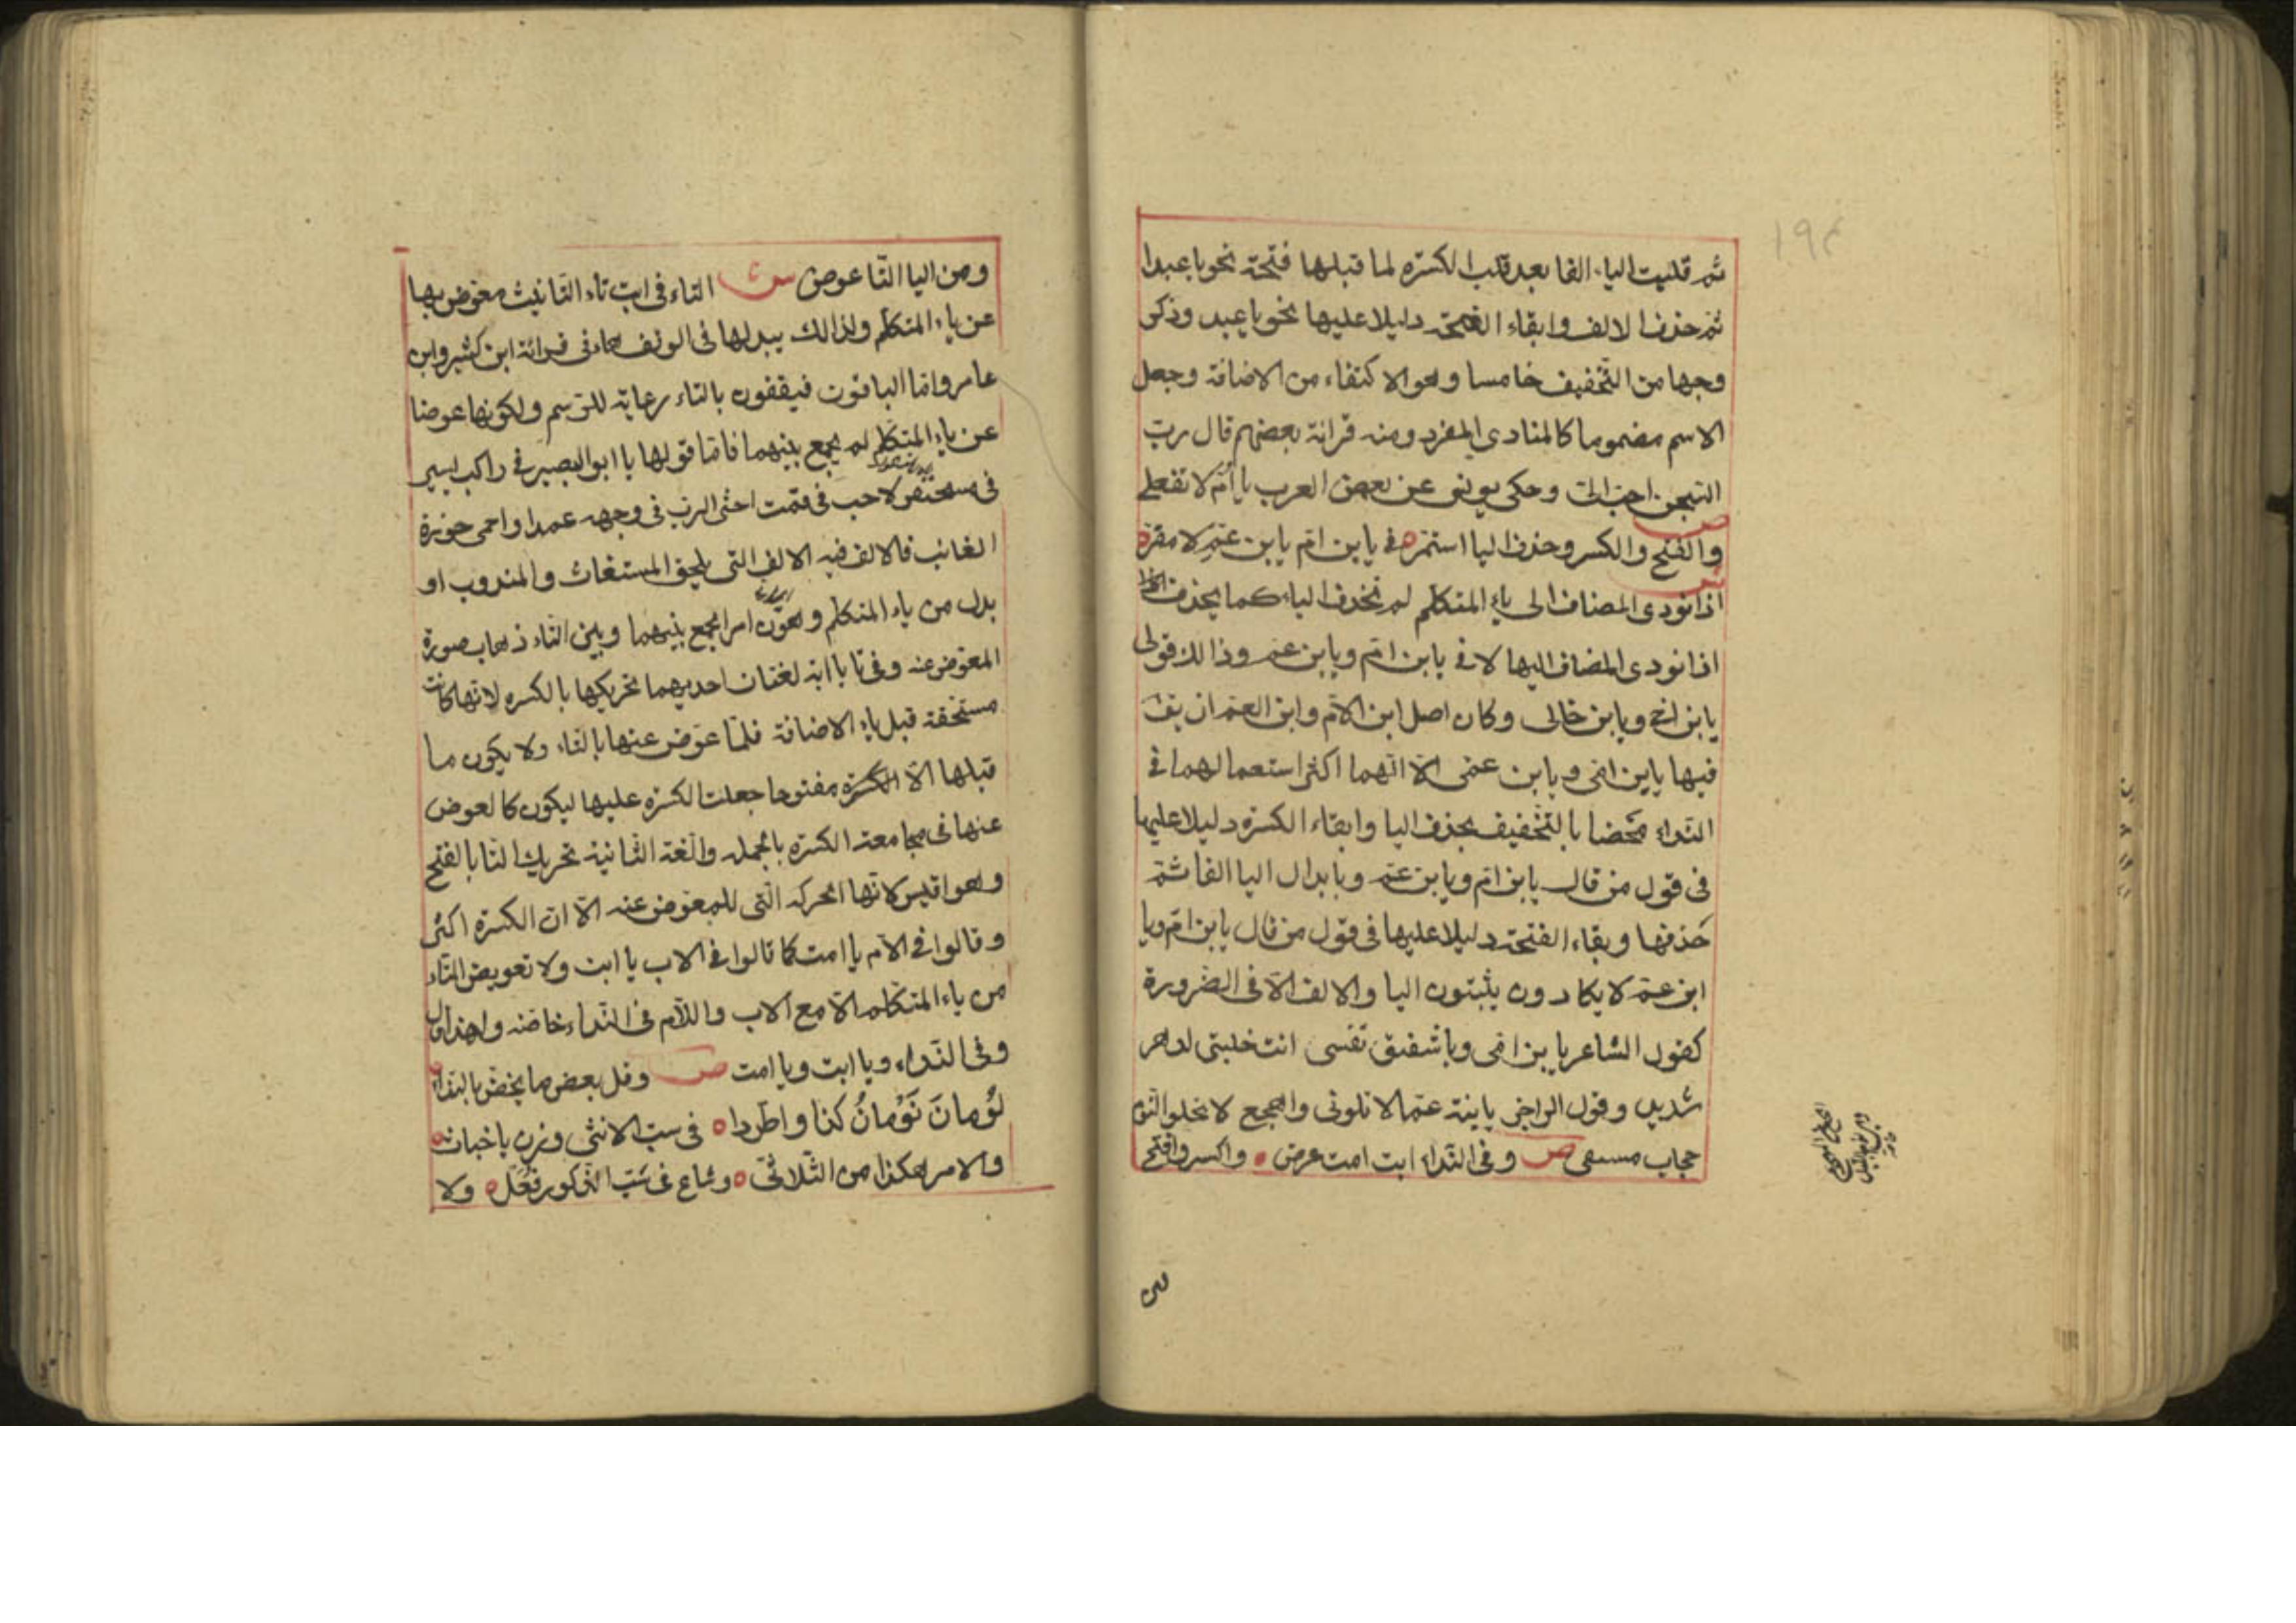 ثم قلبت الياء الفا بعد قلب الكسره لما قبلها فتحة نحو يا عبدا
ثم حذف الالف وابقاء الفتحة دليلا عليها نحو يا عبد وذكر
وجها من التخفيف خامسا وهو الاكتفاء من الاضافة وجعل
الاسم مضموما كالمنادى المفرد ومنه قرائة بعضهم قال رب
السجن احب الى وحكى يونس عن بعض العرب يا أم لا تفعلى
ص
والفتح والكسر وحذف اليا استمره فى يا بن ام يا بن عم لا مفره
ش
اذا نودى المضاف الى ياء المتكلم لم تحذف الياء كما يحذف
اذا نودى المضاف اليها لا فى يا بن ام ويا بن عم وذالك قولى
يا بن اخى ويا بن خالى وكان اصل ابن الام وابن العم ان يقا
فيها يا بن امى ويا بن عمى الا انهما اكثر استعمالهما فى
النداء محضا بالتخفيف بحذف اليا وابقاء الكسره دليلا عليها
فى قول من قال يا بن ام ويا بن عم وبابدال اليا الفا ثم
حذفها وبقاء الفتحة دليلا عليها فى قول من قال يا بن ام ويا
ابن عم لا يكادون يثبتون اليا والالف الا فى الضرورة
كقول الشاعر يا بن امى ويا شقيق نفسى انت خليتى لدهر
شديد وقول الراجز يا بنة عما لا تلومى واهجع لا تخلو النوم
حجاب مسمعى ص وفى النداء ابت امت عرض ه واكسر وافتح
ومن اليا التا عوض ش التاء فى ابت تاء التانيث معوض بها
عن ياء المتكلم ولذالك يبدلها فى الوقف هاء فى قرائة ابن كثير وابن
عامر واما الباقون فيقفون بالتاء رعاية للرسم ولكونها عوضا
عن ياء المتكلم لم يجمع بينهما فاما قولها يا ابو البصير فى راكب يسير
فى مسحنفر لاحب فقمت احثى الترب فى وجهه عمدا واحمى حوزة
الغائب فالالف فيه الالف التى يلحق المستغاث والمندوب او
بدل من ياء المتكلم وهون امر الجمع بينهما وبين التاء ذهاب صورة
المعوض عنه وفى تا يا ابة لغتان احديهما تحريكها بالكسره لانها كانت
مستحقة قبل ياء الاضافة فلما عوض عنها بالتاء ولا يكون ما
قبلها الا مفتوحا جعلت الكسره عليها ليكون كالعوض
عنها فى مجامعة الكسره بالجمله والغة الثانية تحريك التا بالفتح
وهو اقيس لانها الحركه التى للمعوض عنه الا ان الكسرة اكثر
وقالوا فى الام يا امت كما قالوا فى الاب يا ابت ولا تعويض التاء
من ياء المتكلم الا مع الاب والام فى النداء خاصة ولهذا قال
وفى النداء ويا ابت ويا امت ص وفل بعض ما يخض بالنداء
لؤمان نومان كذا واطردا ه فى سب الانثى وزن يا خباث ه
والامر هكذا من الثلاثى ه وشاع فى سب الذكور فعل ه ولا